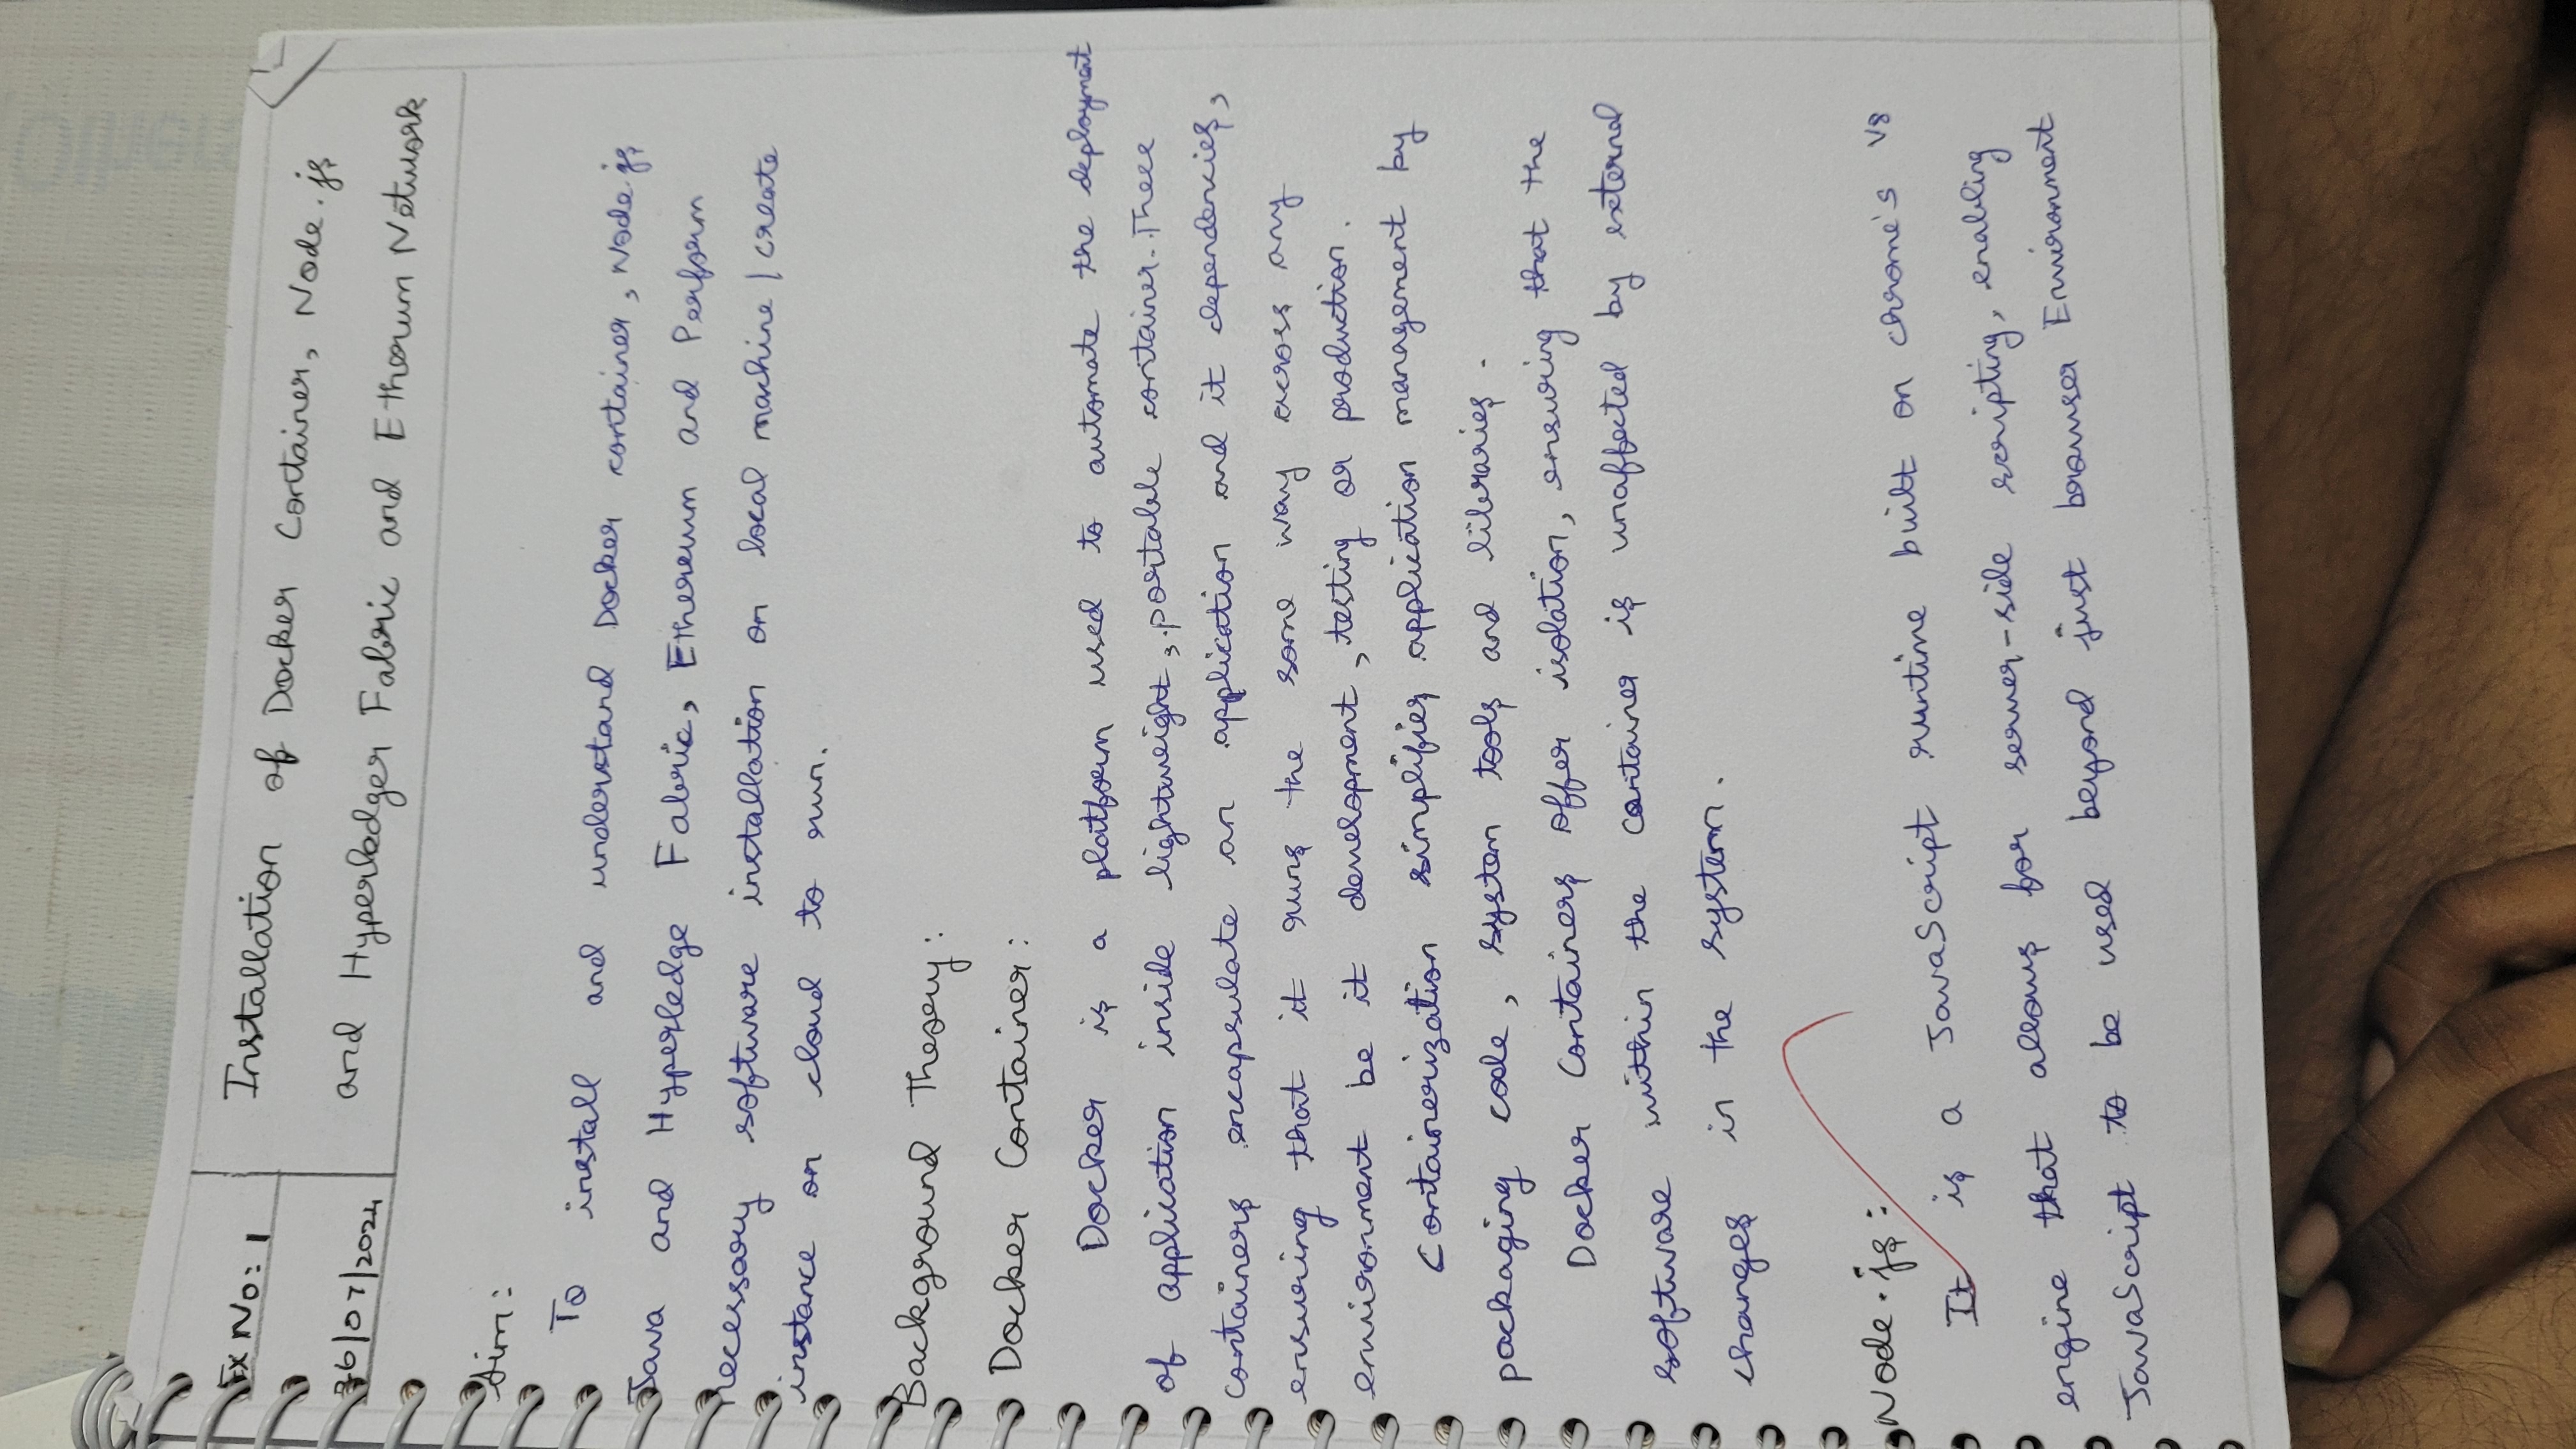 Ex No: 1
26/07/2024
Installation of Docker Container, Node.js
and Hyperledger Fabric and Etherum Network
Aim:
To install and understand Docker container, Node.js
Java and Hyperledge Fabric, Ethereum and Perform
necessary software installation on local machine / create
instance on cloud to run.
Background Theory:
Docker Container:
Docker is a platform used to automate the deployment
of application inside lightweight, portable container. These
containers encapsulate an application and it dependencies,
ensuring that it runs the same way across any
environment be it development, testing or production.
Containerization simplifies application management by
packaging code, system tools and libraries.
Docker Containers offer isolation, ensuring that the
software within the container is unaffected by external
changes in the system.
Node.js:
It is a JavaScript runtime built on chrome's V8
engine that allows for server-side scripting, enabling
JavaScript to be used beyond just browser Environment